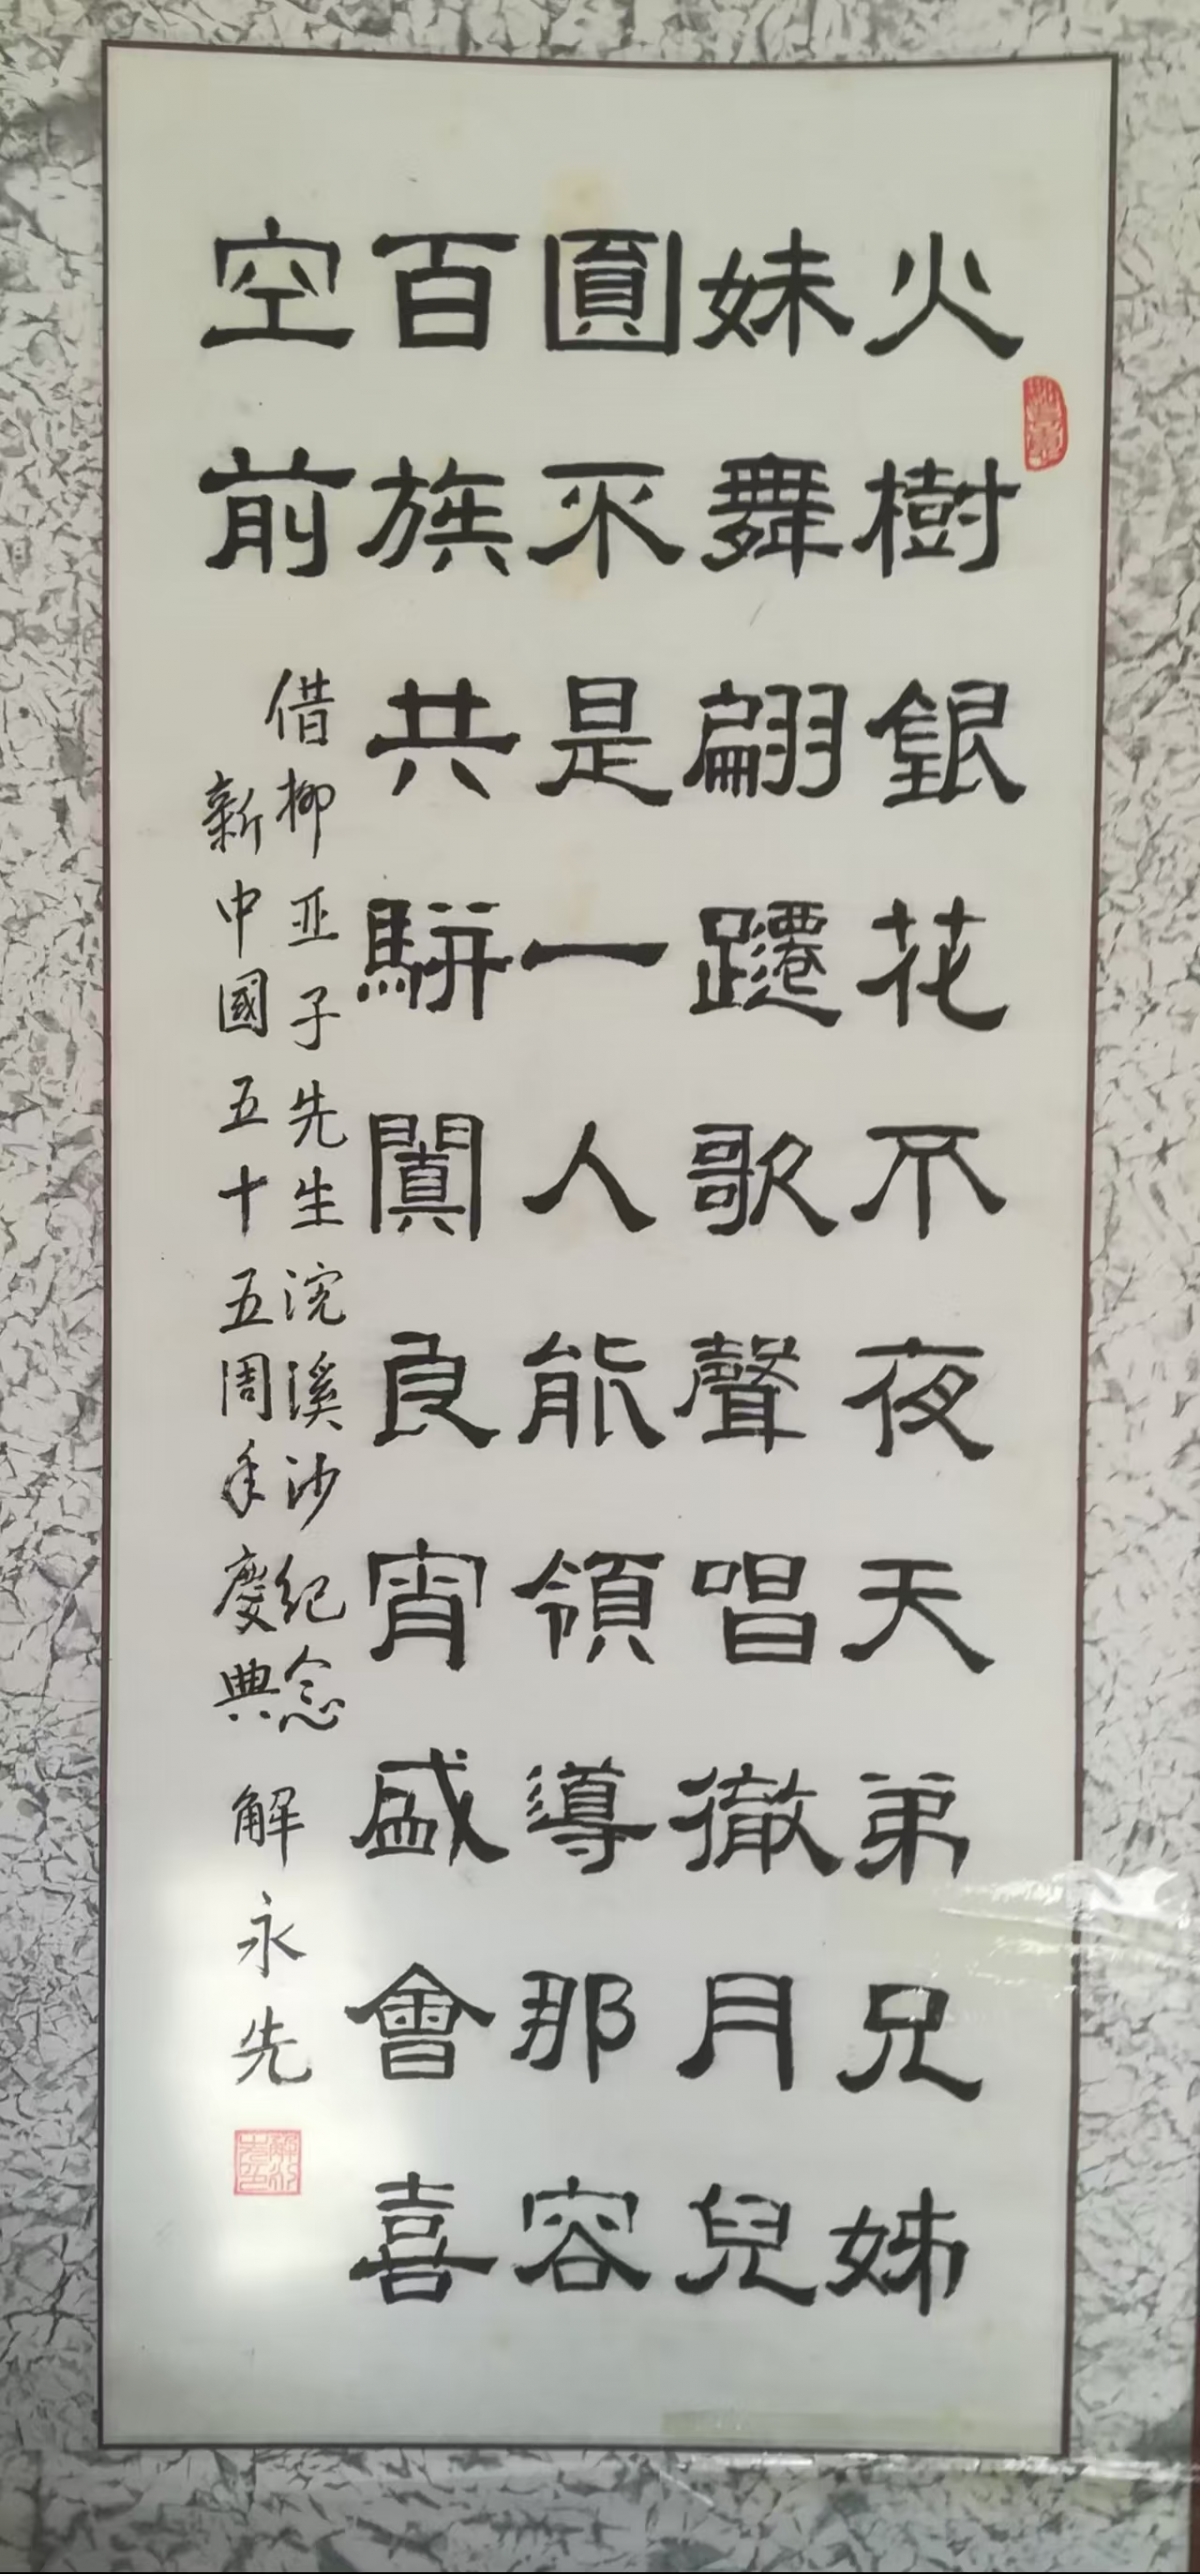 火樹銀花不夜天弟兄姊
妹舞翩躚歌聲唱徹月兒
圓不是一人能領導那容
百族共駢闐良宵盛會喜
空前
借柳亚子先生浣溪沙纪念
新中國五十五周年慶典
解永先